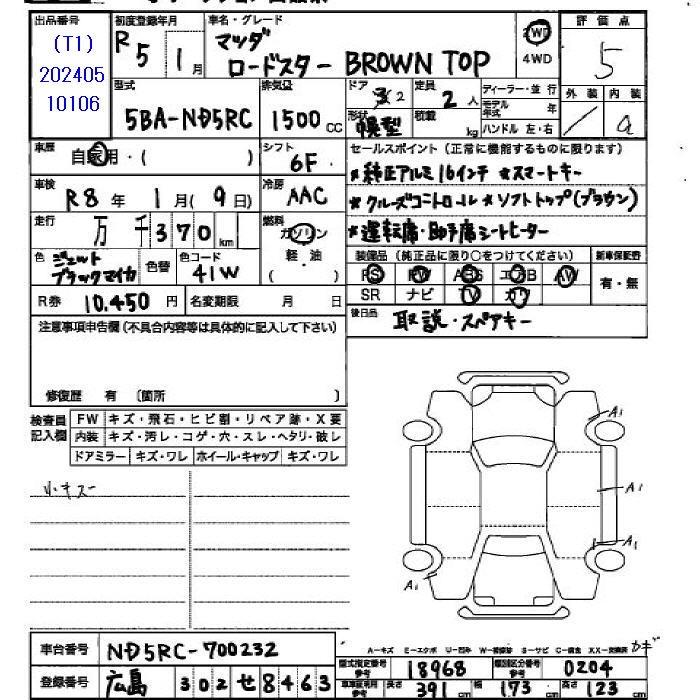 出品番号 初度登録年月 車名・グレード 評価点
(T1)
202405
10106
R5 1月 マツダ
ロードスター BROWN TOP
2WD
4WD
5
型式 排気量 ドア 定員 ディーラー・並行 外装 内装
5BA-ND5RC 1500cc
2 2人
モデル年式 年
形状 積載 kg ハンドル 左・右
幌型
/ a
車歴 自家用・( ) シフト 6F
セールスポイント(正常に機能するものに限ります)
*純正アルミ16インチ *スマートキー
車検 R8年 1月(9日) 冷房 AAC
*クルーズコントロール *ソフトトップ(ブラウン)
走行 万 千 370km 燃料 ガソリン 軽・油 ( )
*運転席・助手席シートヒーター
色 ジェットブラックマイカ 色替 色コード 41W
装備品(純正品に限り○をつけてください) 新車保証書
PS PW ABS エアB AW
SR ナビ TV カワ
有・無
R券 10,450円 名変期限 月 日
後日品 取説・スペアキー
注意事項申告欄(不具合内容等は具体的に記入して下さい)
修復歴 有 〔箇所 〕
検査員記入欄
FW キズ・飛石・ヒビ割・リペア跡・X要
内装 キズ・汚レ・コゲ・穴・スレ・ヘタリ・破レ
ドアミラー キズ・ワレ ホイール・キャップ キズ・ワレ
小キズ
A1
A1
A1
A1
A-キズ E-エクボ U-凹み W-補修跡 S-サビ C-腐食 XX-交換済 カギ
車台番号 ND5RC-700232
登録番号 広島 302 せ 8463
型式指定番号 参考 18968 類別区分番号 参考 0204
車車証明用 参考 長さ 391cm 幅 173cm 高さ 123cm